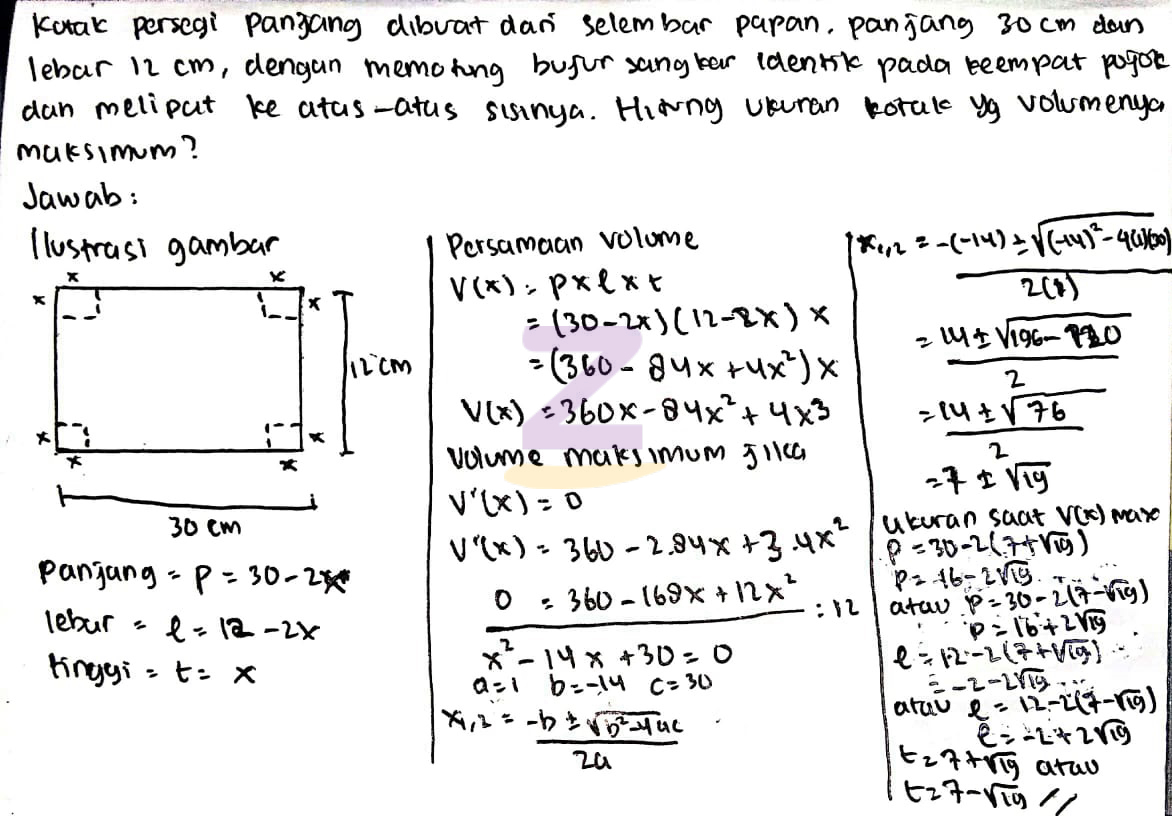 Kotak persegi panjang dibuat dari selembar papan, panjang 30 cm dan
lebar 12 cm, dengan memotong bujur sangkar identik pada keempat pojok
dan melipat ke atas-atas sisinya. Hitung ukuran kotak yg volumenya
maksimum?
Jawab :
Ilustrasi gambar
x x
x x
12 cm
x x
x x
30 cm
Panjang = p = 30 - 2x
lebar = l = 12 - 2x
tinggi = t = x
Persamaan volume
V(x) = p x l x t
= (30-2x)(12-2x) x
= (360 - 84x + 4x²) x
V(x) = 360x - 84x² + 4x3
Volume maksimum jika
V'(x) = 0
V'(x) = 360 - 2.84x + 3.4x²
0 = 360 - 168x + 12x² : 12
x² - 14x + 30 = 0
a=1 b=-14 c=30
x1,2 = -b ± √b²-4ac
2a
x1,2 = -(-14) ± √(-14)² - 4(1)(30)
2(1)
= 14 ± √196 - 120
2
= 14 ± √76
2
= 7 ± √19
ukuran saat V(x) max
p = 30-2(7+√19)
p = 16-2√19
atau p = 30-2(7-√19)
p = 16+2√19
l = 12-2(7+√19)
= -2-2√19
atau l = 12-2(7-√19)
l = -2+2√19
t = 7+√19 atau
t = 7-√19 //
Z